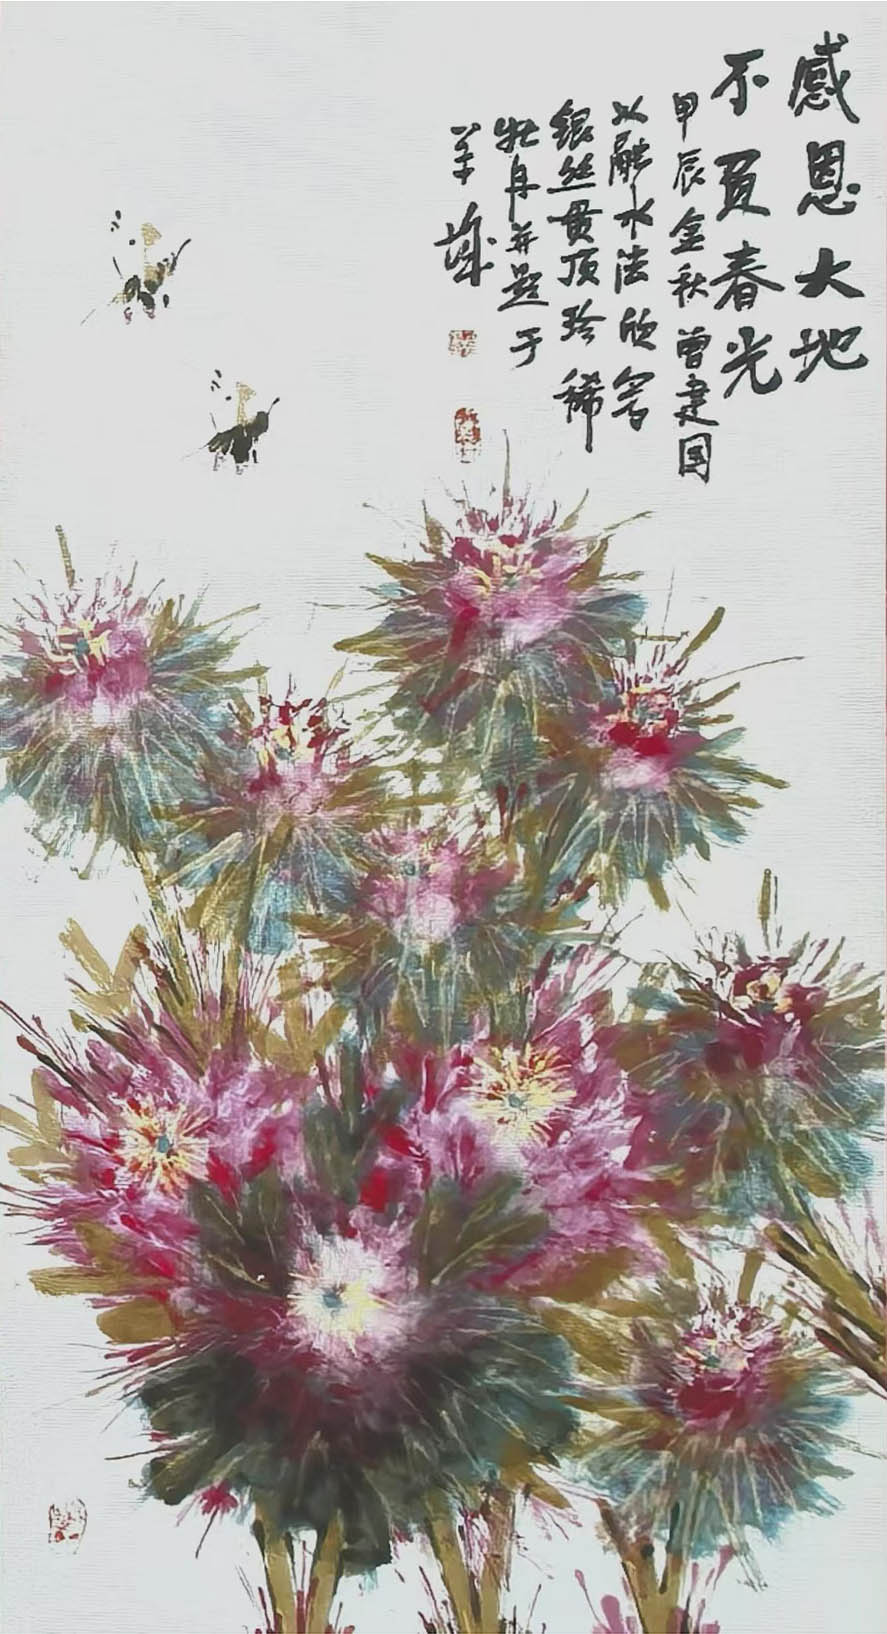 感恩大地
不负春光
甲辰金秋曾建国
以融水法欣写
银丝贯顶珍稀
牡丹并题于
羊城